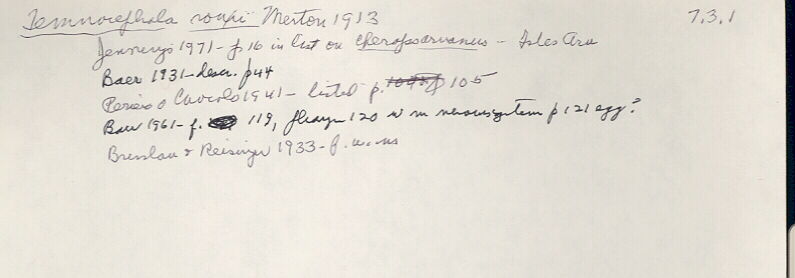 Temnocephala rouxii Merton 1913 7.3.1
Jennings 1971 - p 16 in list on Cheraps arvanus - Isles Aru
Baer 1931 - descr. p 44
Pereira & Cuocolo 1941 - listed p. 105
Baer 1961 - p. 119, pharynx 120 n m nervous system p 121 egg?
Bresslau & Reisinger 1933 - p.